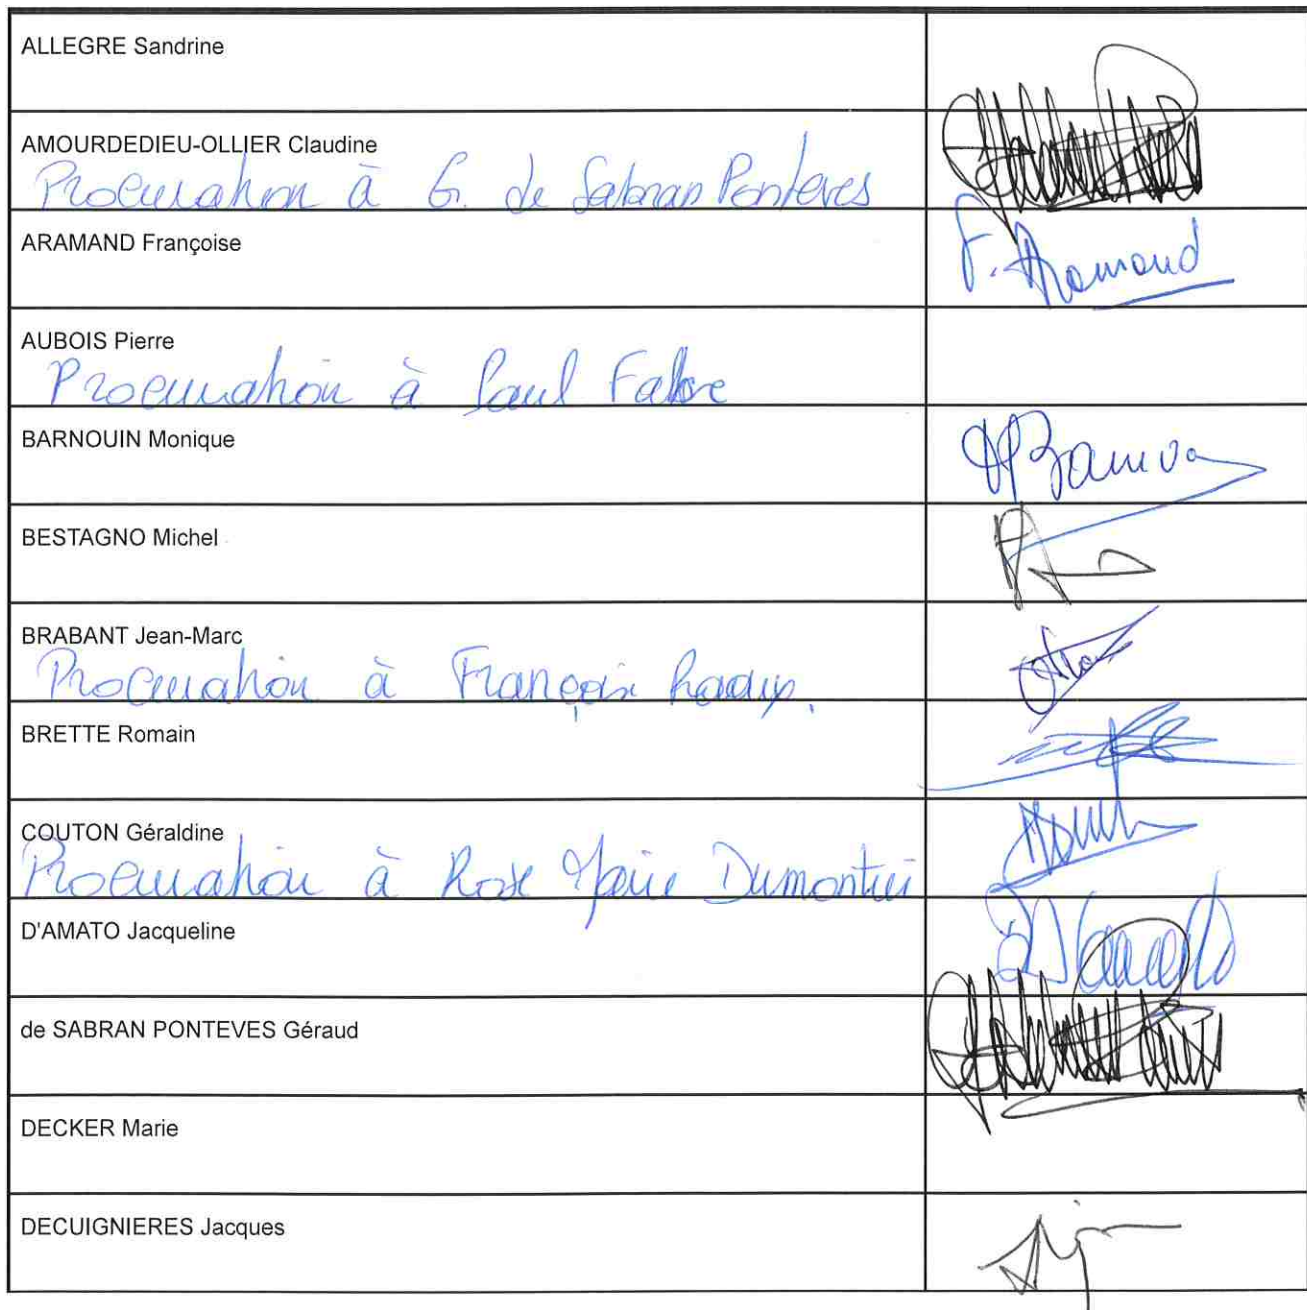 ALLEGRE Sandrine
AMOURDEDIEU-OLLIER Claudine
Procuration à G. de Sabran Ponteves
ARAMAND Françoise
F. Aramand
AUBOIS Pierre
Procuration à Paul Fabre
BARNOUIN Monique
BESTAGNO Michel
BRABANT Jean-Marc
Procuration à François
BRETTE Romain
COUTON Géraldine
Procuration à Rose Marie Dumontier
D'AMATO Jacqueline
de SABRAN PONTEVES Géraud
DECKER Marie
DECUIGNIERES Jacques